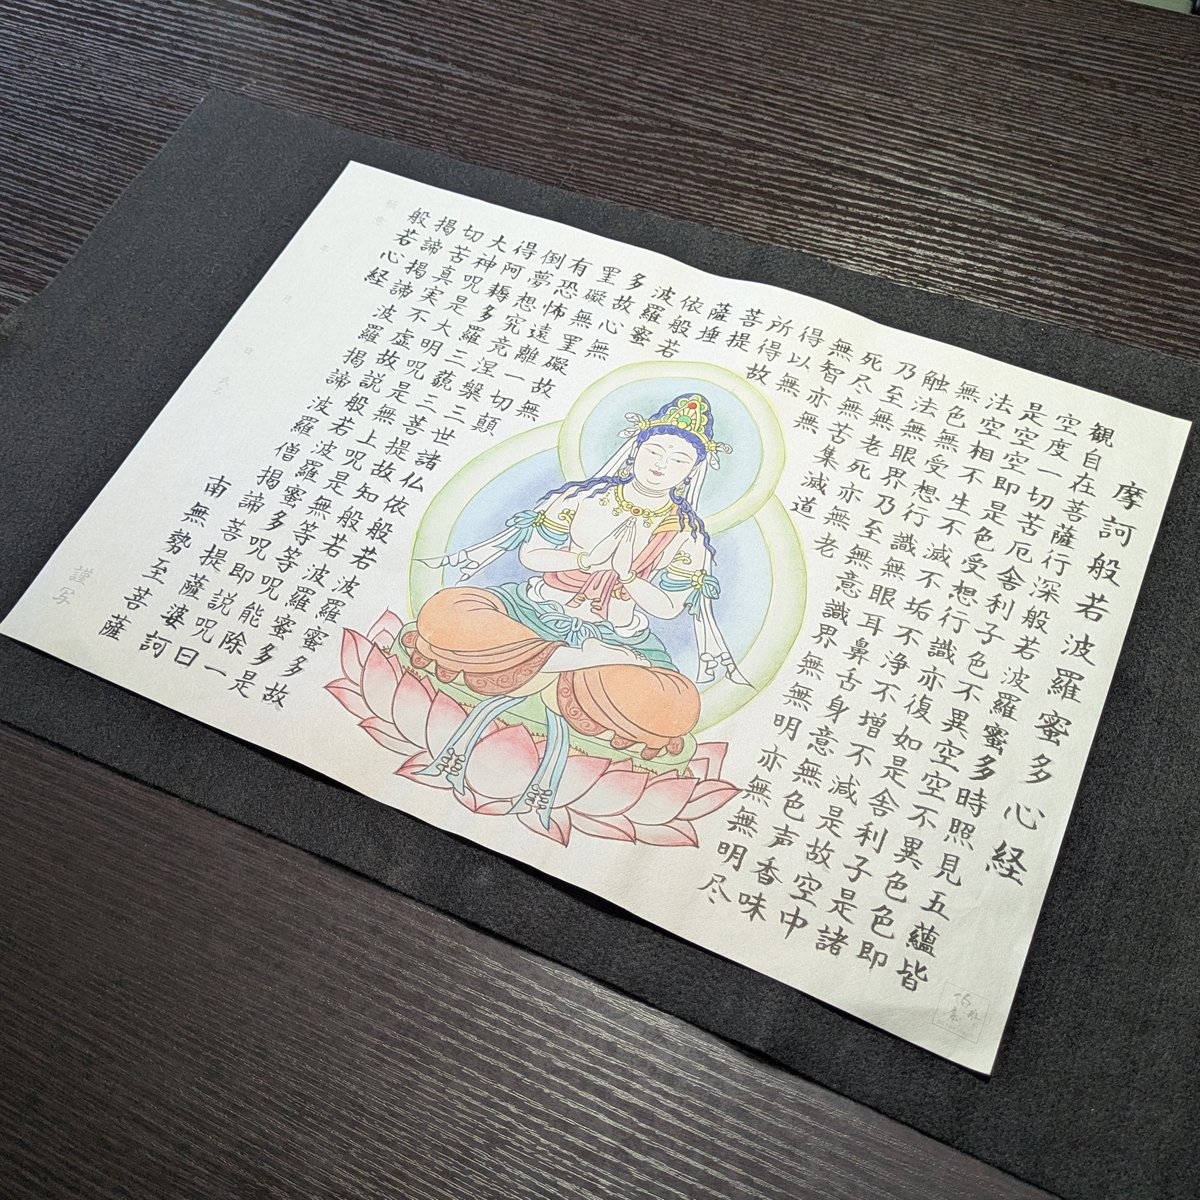 摩訶般若波羅蜜多心経
観自在菩薩行深般若波羅蜜多時照見五蘊皆
空度一切苦厄舎利子色不異空空不異色色即
是空空即是色受想行識亦復如是舎利子是諸
法空相不生不滅不垢不浄不増不減是故空中
無色無受想行識無眼耳鼻舌身意無色声香味
触法無眼界乃至無意識界無無明亦無無明尽
乃至無老死亦無老
死尽無苦集滅道
無智亦無
得以無
所得故
菩提
薩埵
依般若
波羅蜜
多故心無
罣礙無罣礙故無
有恐怖遠離一切顛
倒夢想究竟涅槃三世諸仏依般若波羅蜜多故
得阿耨多羅三藐三菩提故知般若波羅蜜多是
大神呪是大明呪是無上呪是無等等呪能除一
切苦真実不虚故説般若波羅蜜多呪即説呪曰
揭諦揭諦波羅揭諦波羅僧揭諦菩提薩婆訶
般若心経 南無勢至菩薩
願意
年 月 日 氏名 謹写